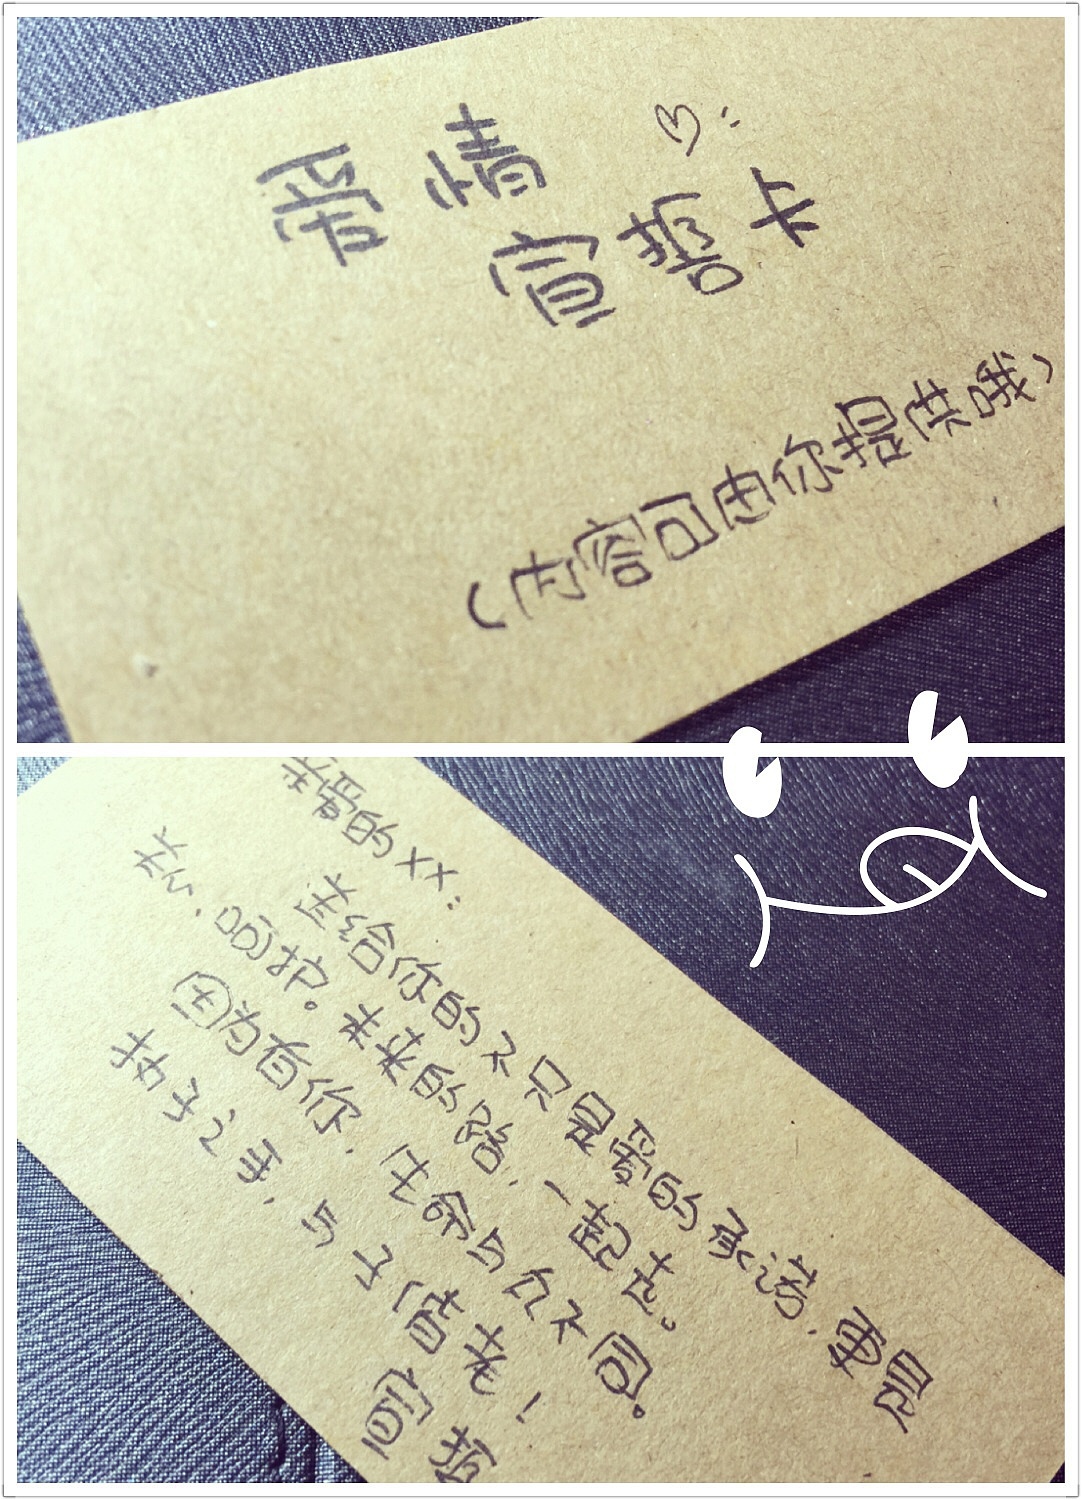 爱情
宣誓卡
(内容可由你提供哦)
亲爱的xx:
送给你的不只是爱的承诺,更是
关心、呵护。未来的路,一起走。
因为有你,生命与众不同。
执子之手,与子偕老!
宣